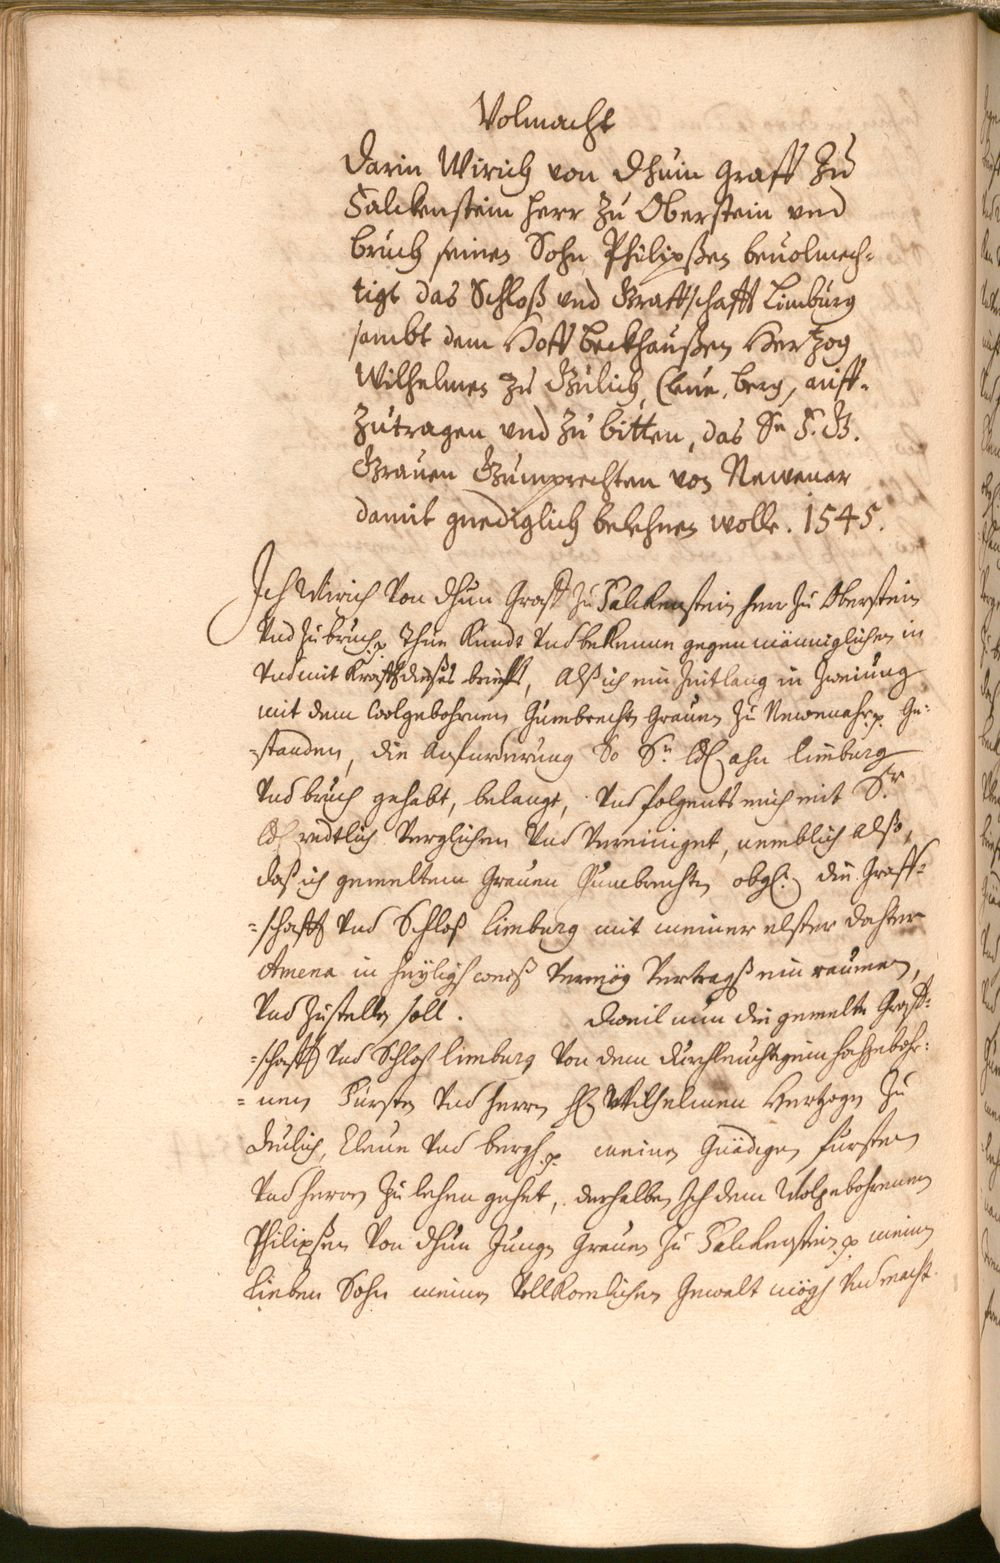 Volmacht
Darin Wirich von Dhuin Graff zu
Falckenstein Herr zu Oberstein vnd
bruch seinen Sohn Philipßen beuolmech-
tigt das Schloß vnd Graffschafft Limburg
sambt dem Hoff Beckhaußen Hertzog
Wilhelmen zu Gulich, Cleue, berg, auff-
zutragen vnd zu bitten, das Sn F. G.
Grauen Gumprechten von Newenar
damit gnediglich belehnen wolle. 1545.
Ich Wirich Von Dhun Graff zu Falckenstein herr zu Oberstein
Vnd zu bruch p. Thue Kundt Vnd bekenne gegen männiglichen in
Vnd mit Krafft dießes brieffs, Alß ich ein Zeitlang in Zweiung
mit dem Woolgebohrnen Gumbrecht Grauen zu Newenahr p. Ge-
=standen, die Anfurderung So Sn Ld ahn limburg
Vnd bruch gehabt, belangt, Vnd folgents mich mit Sr
Ld redtlich Verglichen Vnd Vereiniget, nemblich Alßo,
daß ich gemeltem Grauen Gumbrechten obgl. die Graff-
=schafft Vnd Schloß limburg mit meiner elster dochter
Amena in heyligs weiß Vermög Vertragß ein raumen,
Vnd Zustellen soll. Dweil nun die gemelte Graff-
=schafft Vnd Schloß limburg Von dem durchleuchtigem hochgebohr-
=nen Fürsten Vnd herrn H. Wilhelmen Hertzogen zu
Geulich, Cleue Vnd bergh p. meinen Gnädigen fursten
Vnd herrn zu lehen gehet, derhalben Ich dem Wolgebohrnen
Philipßen Von Dhun Junge Grauen zu Falckenstein p meinen
lieben Sohn meinen Vollkomlichen Gewalt mögh Vnd macht